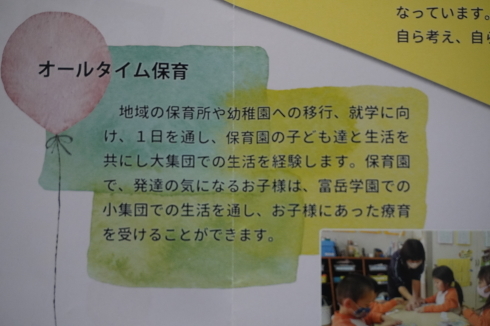 なっています。
自ら考え、自
オールタイム保育
地域の保育所や幼稚園への移行、就学に向
け、１日を通し、保育園の子ども達と生活を
共にし大集団での生活を経験します。保育園
で、発達の気になるお子様は、富岳学園での
小集団での生活を通し、お子様にあった療育
を受けることができます。